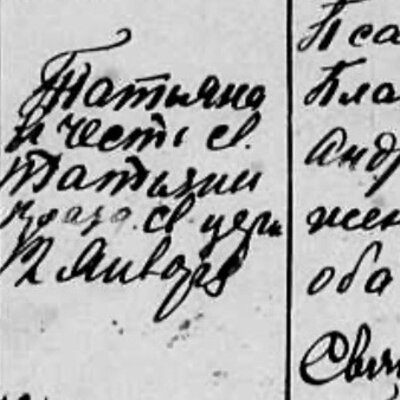 Татьяна
в честь св.
Татьяны
св. церк
12 Января
Пса
Пла
Анд
жен
оба
Свящ